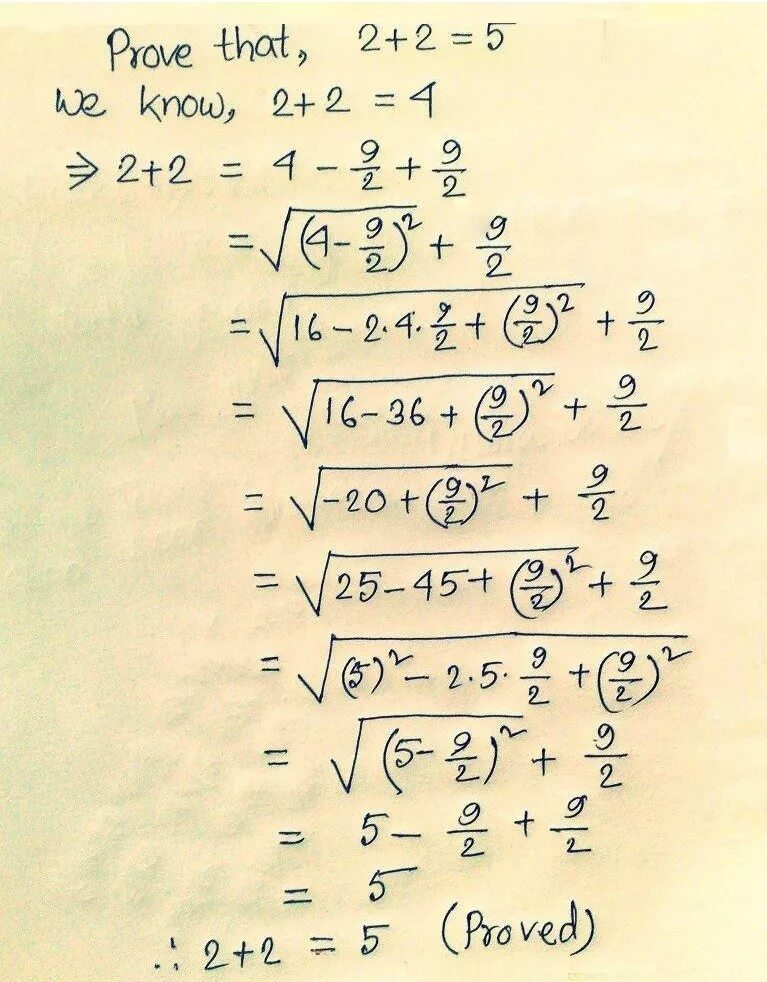 Prove that, 2+2 = 5
We know, 2+2 = 4
⇒ 2+2 = 4 - 9/2 + 9/2
= √(4 - 9/2)² + 9/2
= √16 - 2·4·9/2 + (9/2)² + 9/2
= √16 - 36 + (9/2)² + 9/2
= √-20 + (9/2)² + 9/2
= √25 - 45 + (9/2)² + 9/2
= √(5)² - 2·5·9/2 + (9/2)²
= √(5 - 9/2)² + 9/2
= 5 - 9/2 + 9/2
= 5
∴ 2+2 = 5 (Proved)